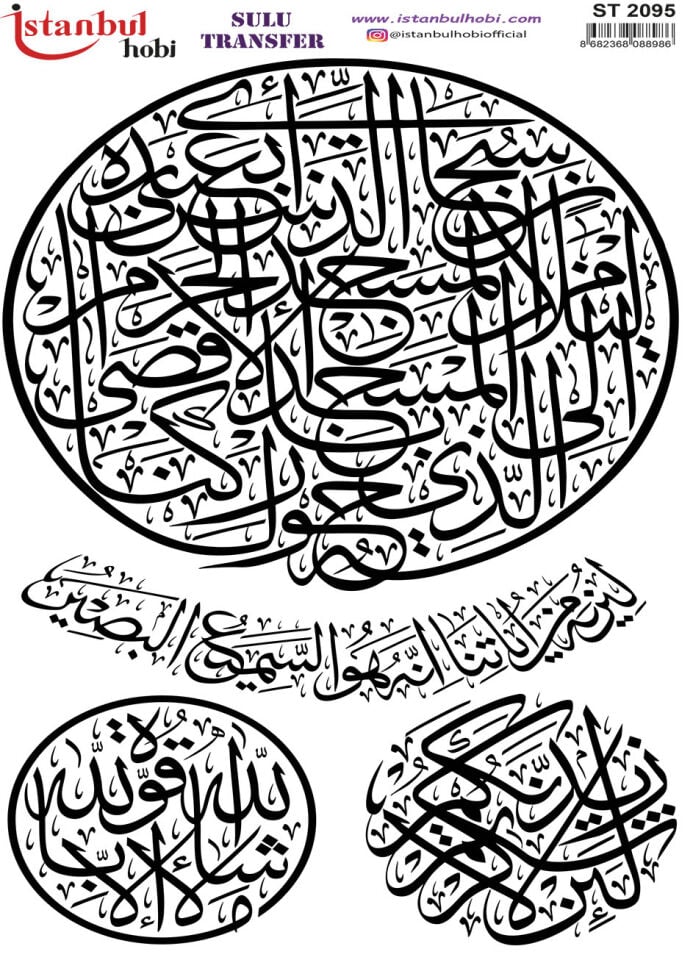 istanbul hobi
SULU TRANSFER
www.istanbulhobi.com
@istanbulhobiofficial
ST 2095
8 682368 088986
سبحان الذي أسرى بعبده
ليلا من المسجد الحرام
إلى المسجد الأقصى
الذي باركنا حوله
لنريه من اياتنا انه هو السميع البصير
ما شاء الله لا قوة إلا بالله
لئن شكرتم لأزيدنكم